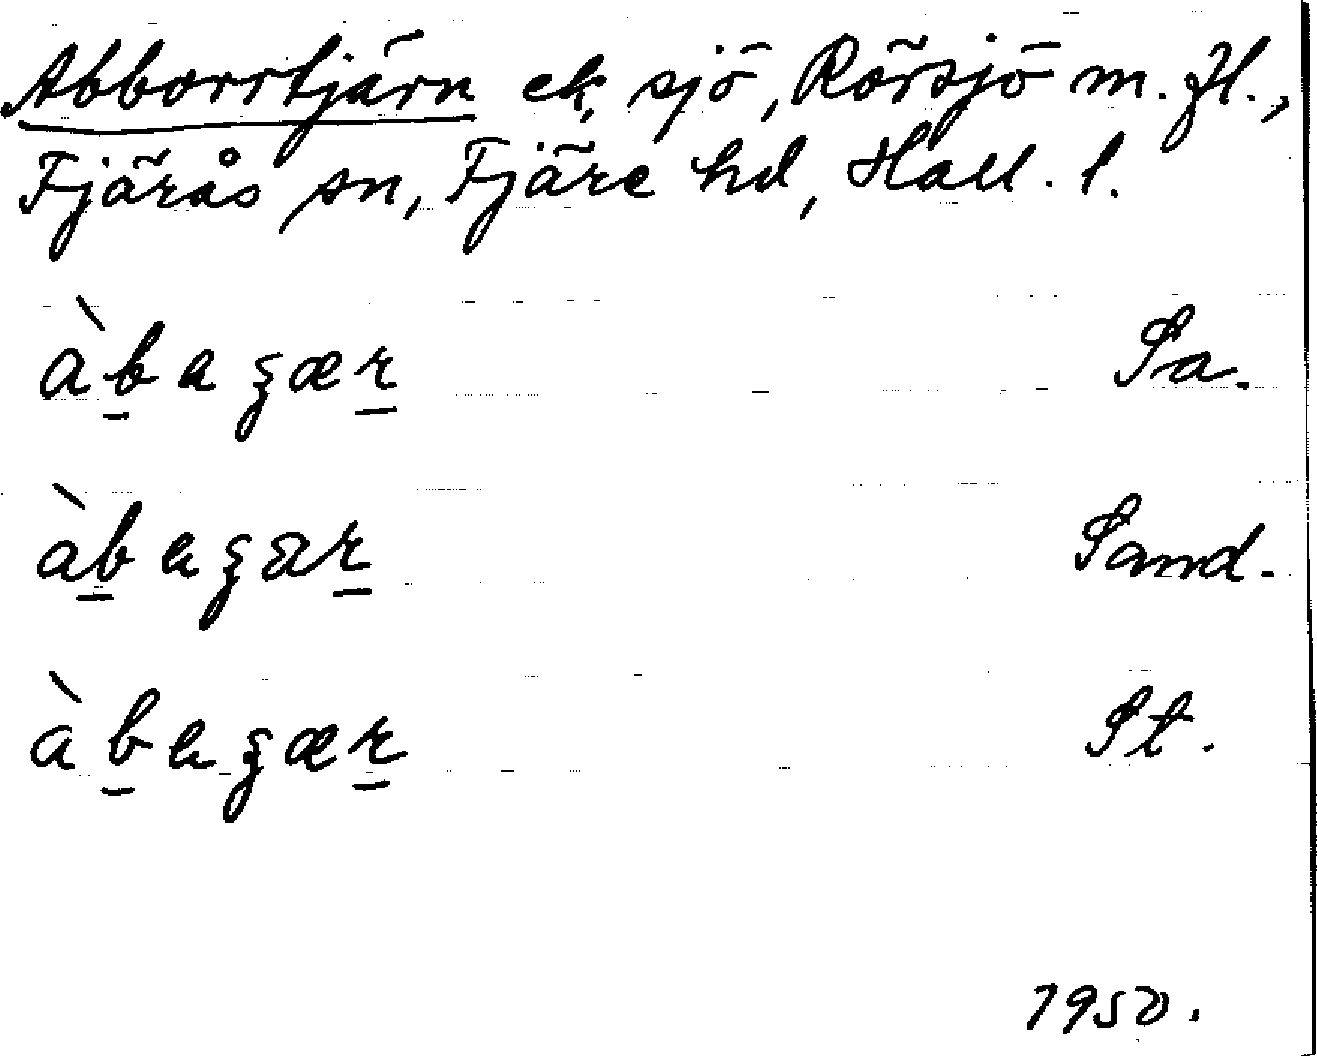 Abborrtjärn ek, sjö, Rörsjö m. fl.,
Fjärås sn, Fjäre hd, Hall. l.
àbaʒær Sa.
àbaʒar Sand.
àbaʒær St.
1950.